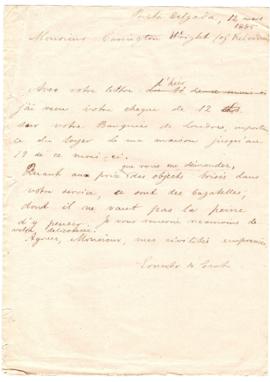 Ponta Delgada, 12 mars
1885
Monsieur Carrington Wright
Avec votre lettre d'hier
j'ai reçu votre cheque de 12
sur votre Banquier de Londres, importan
ce du loyer de ma maison jusqu'au
19 de ce mois-ci.
que vous me demandez,
Quant aux prix des objects brisés dans
votre service, ce sont des bagatelles,
dont il ne vaut pas la peine
d'y penser. Je vous remercie néanmoins de
votre délicatesse.
Agréez, Monsieur, mes civilités empressées
Ernesto do Canto